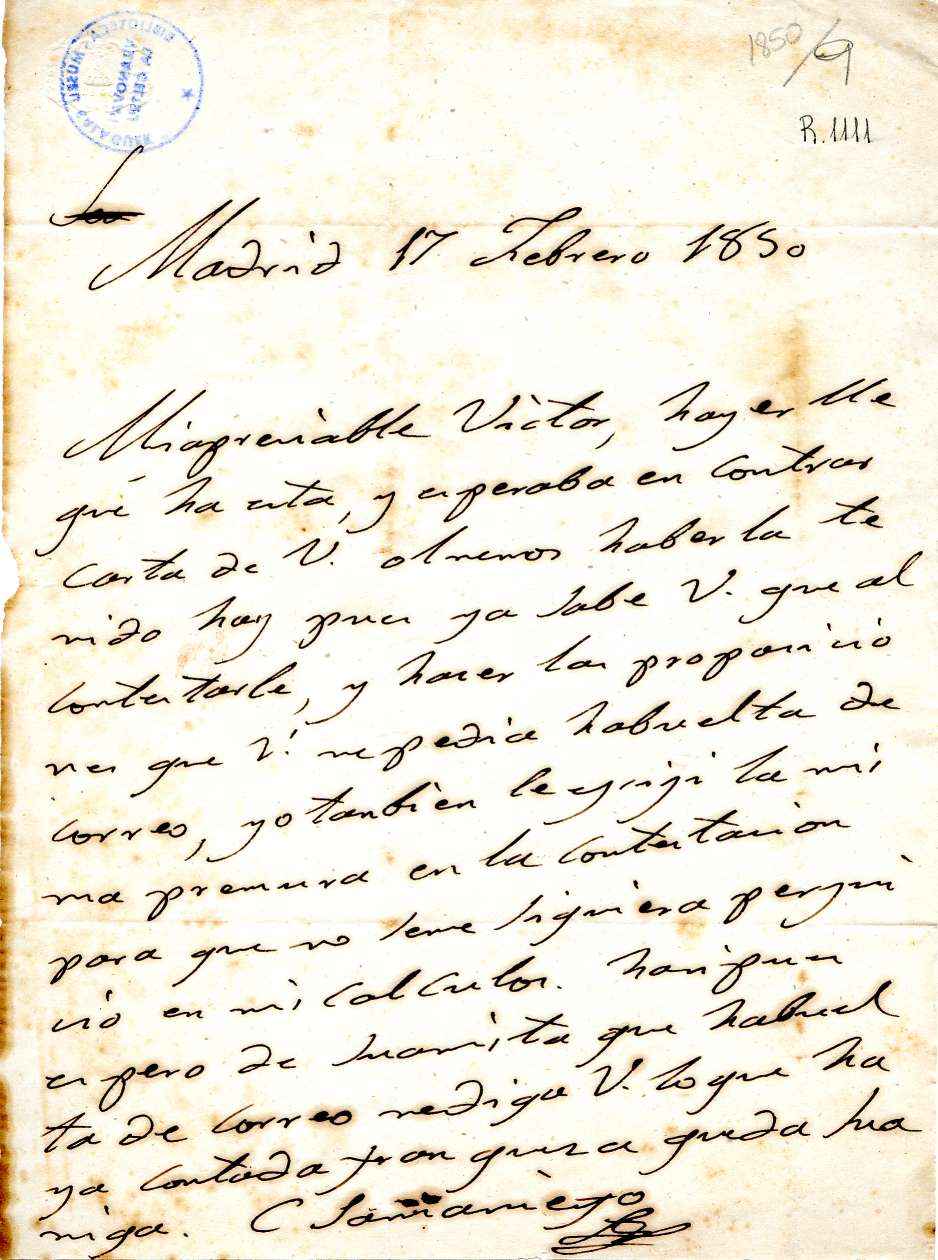 1850/9
R.1111
BIBLIOTECA MUSEU BALAGUER
VILANOVA I LA GELTRÚ
Madrid 17 Febrero 1850
Mi apreciable Victor, hayer lle
gué ha esta, y esperaba en contrar
carta de V. o lmenos haberla te
nido hoy pues ya sabe V. que al
contestarle, y hacer las proposicio
nes que V. me pedia habuelta de
correo, yo tanbien le ecsigi la mis
ma premura en la contestacion
para que no seme siguiera perjui
cio en mis calculos. hasi pues
espero de su amista que habuel
ta de correo me diga V. lo que ha
ya contoda franqueza queda su a
miga. C Samaniego